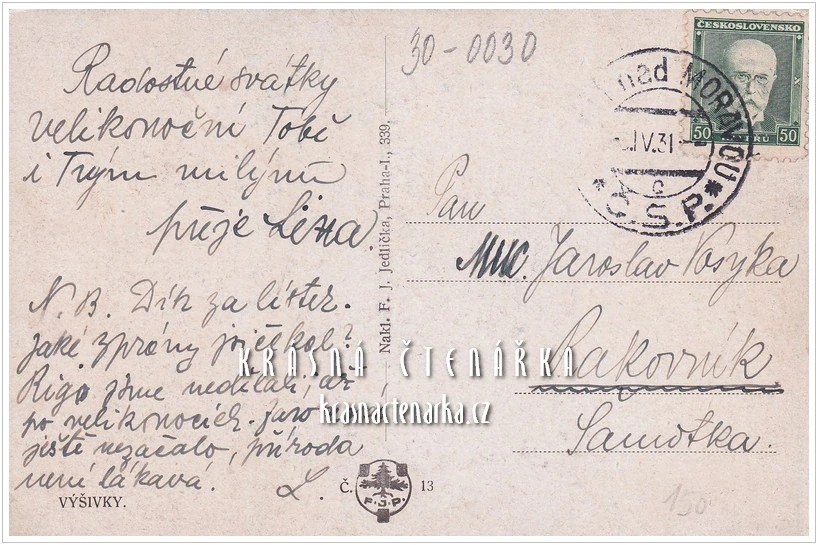 30-0030
Radostné svátky
velikonoční Tobě
i Tvým milým
přeje Lena.
N.B. Dík za lístek.
Jaké zprávy jsi čekal?
Rigo jsme nedělali, až
po velikonocích. Jaro
ještě nezačalo, příroda
není lákavá.
L.
VÝŠIVKY.
Nakl. F. J. Jedlička, Praha-I., 339.
Č. 13
F.J.P.
ČESKOSLOVENSKO
50 50
nad MORAVOU
IV.31
c
*Č.S.P.*
Pan
MUC. Jaroslav Vosyka
Rakovník
Samotka.
150
KRÁSNÁ ČTENÁŘKA
krasnactenarka.cz